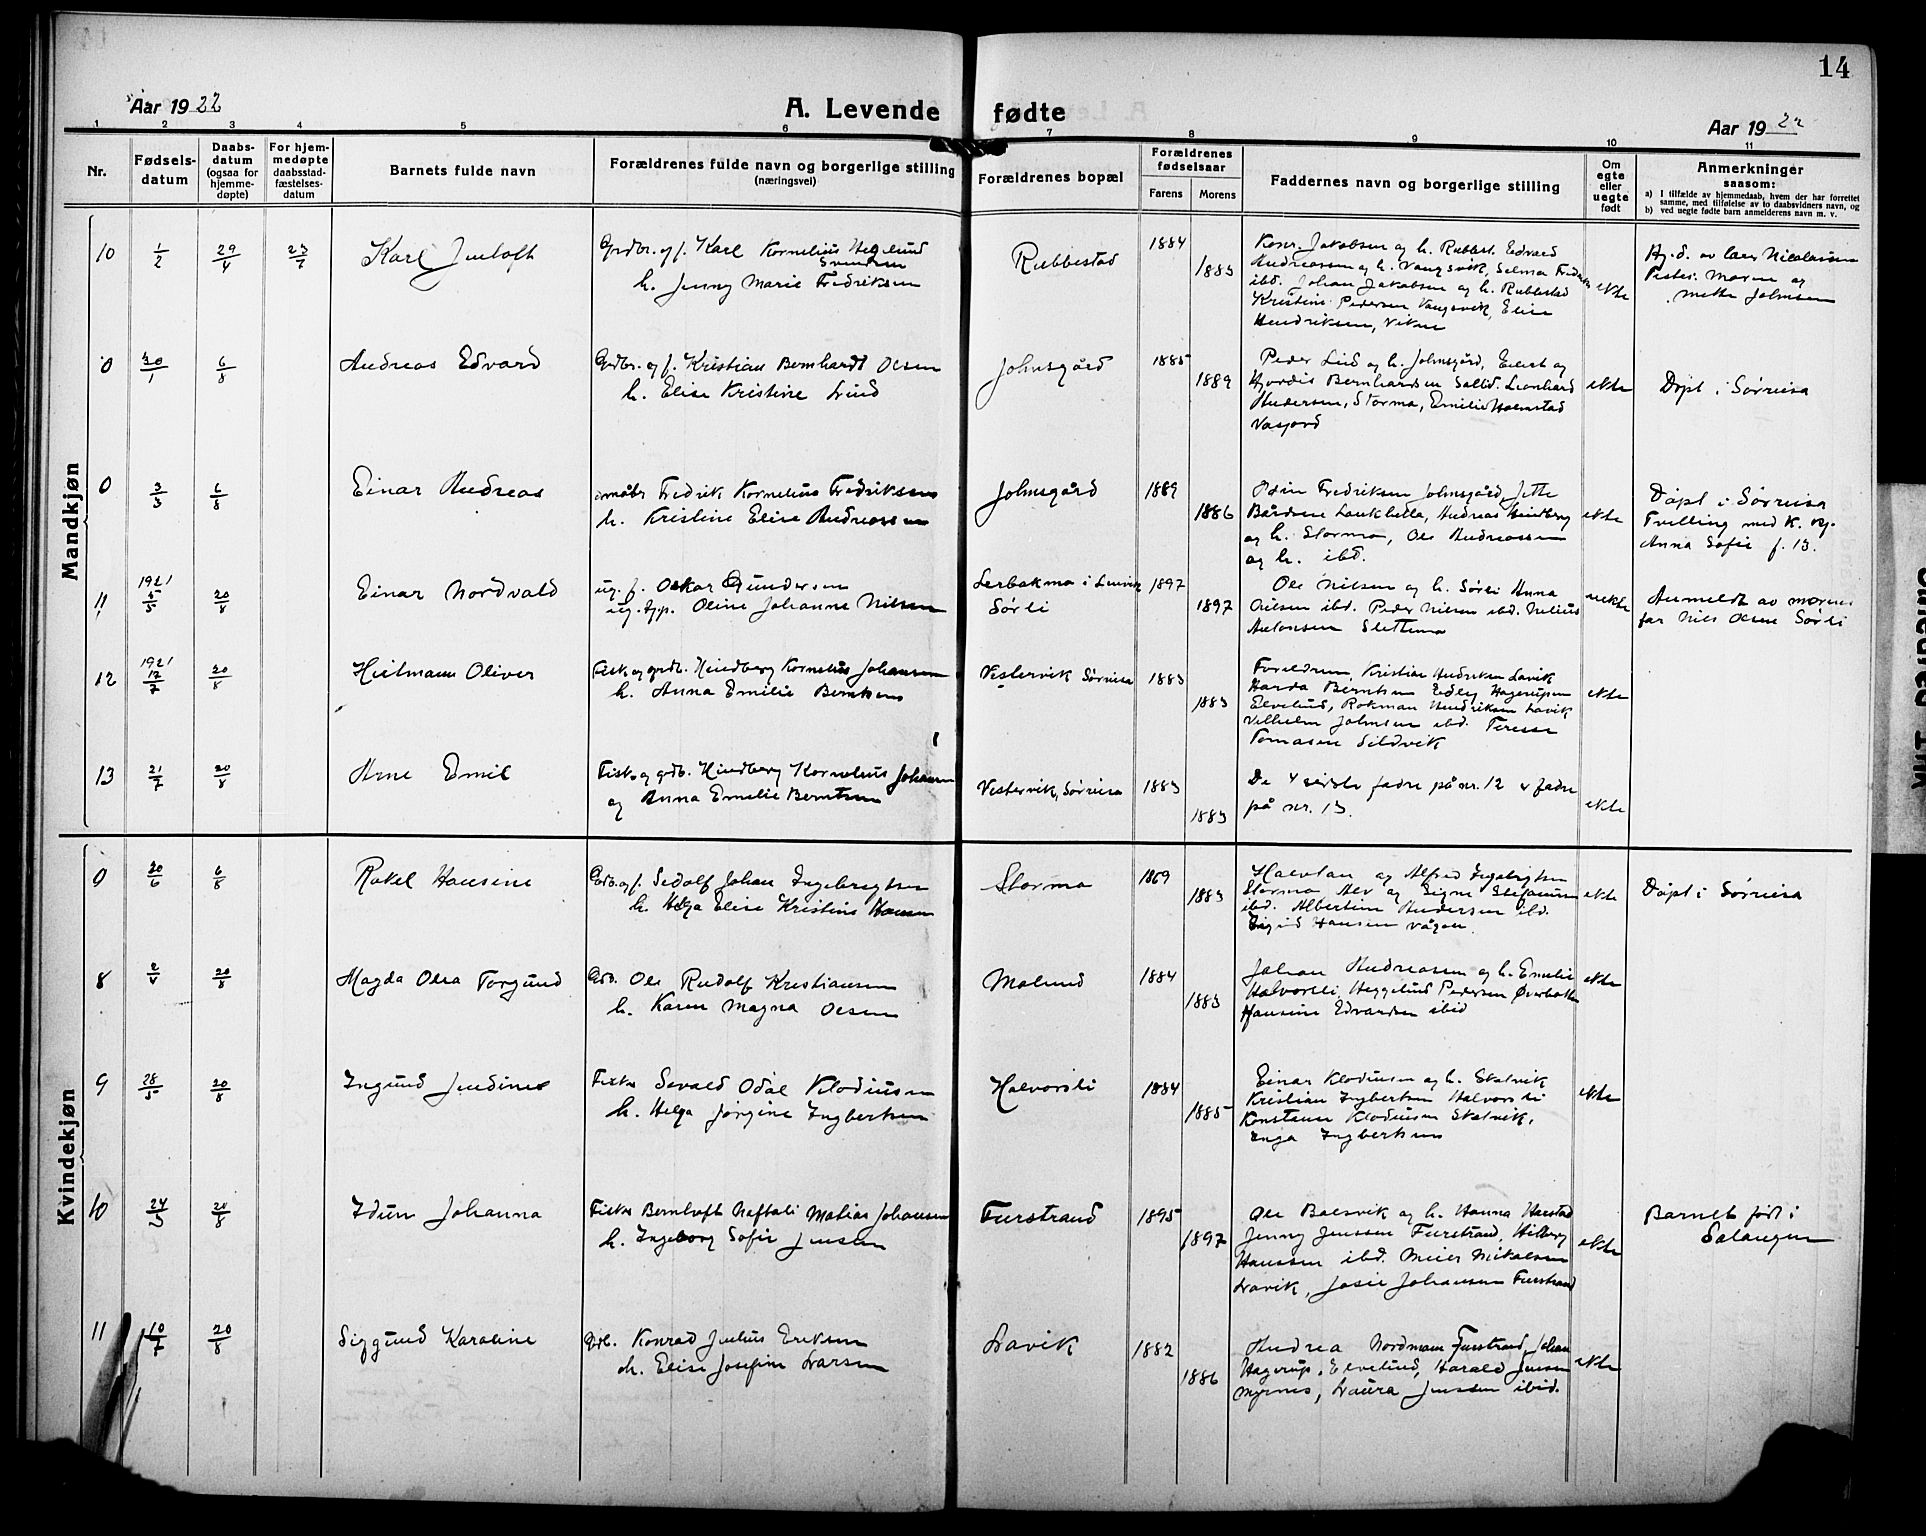 14
Aar 1922
A. Levende fødte
Aar 1922
1 2 3 4 5 6 7 8 9 10 11
Nr.
Fødsels-
datum
Daabs-
datum
(ogsaa for
hjemme-
døpte)
For hjem-
medøpte
daabsstad-
fæstelses-
datum
Barnets fulde navn
Forældrenes fulde navn og borgerlige stilling
(næringsvei)
Forældrenes bopæl
Forældrenes
fødselsaar
Farens Morens
Faddernes navn og borgerlige stilling
Om
egte
eller
uegte
født
Anmerkninger
saasom:
a) I tilfælde av hjemmedaab, hvem der har forrettet
samme, med tilføielse av to daabsvidners navn, og
b) ved uegte fødte barn anmelderens navn m. v.
Mandkjøn
10 1/2 29/4 Karl
Grdbr. og f. Karl Kornelius Hegelund
Svendsen
h. Jenny Marie Fredriksen
Rubbestad 1884
1883
Konr. Jakobsen og h. Rubbest. Edvard
Andreassen og h. Vangsvik, Selma
ibd. Johan Jakobsen og h. Rubbestad
Kristine Pedersen Vangsvik, Elise
Hendriksen, Viken
ekte
Hj.d. av lær. Nicolaisen
Test: Maren og
Mette Johnsen
0 30/1 6/8 Andreas Edvard
Grdbr. og f. Kristian Bernhardt Olsen
h. Elise Kristine Lind
Johnsgård 1885
1889
Peder Lind og h. Johnsgård, Eilert og
Hjørdis Bernhardsen Leonhard
Andersen, Stormo, Emilie Holmstad
ekte
Døpt i Sørreisa
0 3/3 6/8 Einar Andreas
Fredrik Kornelius Fredriksen
h. Kristine Elise Andreassen
Johnsgård 1889
1886
Odin Fredriksen Johnsgård, Jette
Bårdsen Laukhella, Andreas Hindberg
og h. Stormo, Ole Andreassen
og h. ibd.
ekte
Døpt i Sørreisa
Tvilling med K. kj.
Anna Sofie f. 13.
11 1921 20/8 Einar Nordvald
ug. f. Oskar Gundersen
ug. tjp. Oline Johanne Nilsen
i Lenvik
Sørli
1897
1897
Ole Nilsen og h. Sørli Anna
Nilsen ibd. Peder Nilsen ibd. Nelius
Antonsen Slettmo
uekte
Anmeldt av morens
far Nils Olsen Sørli
12 1921 17/7 20/8 Hilmann Oliver
Fisk. og grdb. Hindberg Kornelius Johansen
h. Anna Emilie Berntsen
Vestervik Sørreisa 1883
1883
Foreldrene, Kristian Hendriksen Lavik
Harda Berntsen Edly Hagerupsen
Elvelund, Rokman Hendriksen Lavik
Vilhelm Johnsen ibd. Terese
Tomasen Sildvik
ekte
13 21/7 20/8 Arne Emil
Fisk. og grdb. Hindberg Kornelius Johansen
og Anna Emilie Berntsen
Vestervik, Sørreisa 1883
1883
De 4 sidste fadre på nr. 12 er fadre
på nr. 13.
ekte
Kvindekjøn
0 20/6 6/8 Rakel Hansine
Grdb. og f. Sedolf Johan Ingebrigtsen
h. Helga Elise Kristine Hansen
Stormo 1869
1883
Halvdan og Alfred Ingebrigtsen
Stormo Alv og Signe Stefanussen
ibd. Albertine Andersen ibd.
Ingrid Hansen Vågan.
ekte
Døpt i Sørreisa
8 2/4 20/8 Magda Olea Torgund
Grdb. Ole Rudolf Kristiansen
h. Karen Magna Olsen
Molund 1884
1883
Johan Andreassen og h. Emelie
Halvorsli, Heggelund Pedersen Øverbotn
Hansine Edvardsen ibid
ekte
9 28/5 20/8 Ingund Jendine
Fisker Sevald Odal Klodiusen
h. Helga Jørgine Ingbertsen
Halvorsli 1884
1885
Einar Klodiusen og h. Skatvik
Kristian Ingbertsen Halvorsli
Konstanse Klodiusen Skatvik,
Inga Ingbertsen
ekte
10 24/3 20/8 Idun Johanna
Fisker Bernhoft Naftali Matias Johansen
h. Ingeborg Sofie Jensen
Furstrand 1895
1897
Ole Bolsvik og h. Hanna Harstad
Jenny Jenssen Furstrand, Hilberg
Hanssen ibd. Meier Mikalsen
Lavik, Josie Johansen Furstrand
ekte
Barnet født i
Salangen
11 10/7 20/8 Siggund Karoline
Grdb. Konrad Julius Eriksen
h. Elise Josefine Larsen
Lavik 1882
1886
Andrea Nordmann Furstrand, Johan
Hagerup, Elvelund, Harald Jensen
Myrnes, Laura Jenssen ibid.
ekte